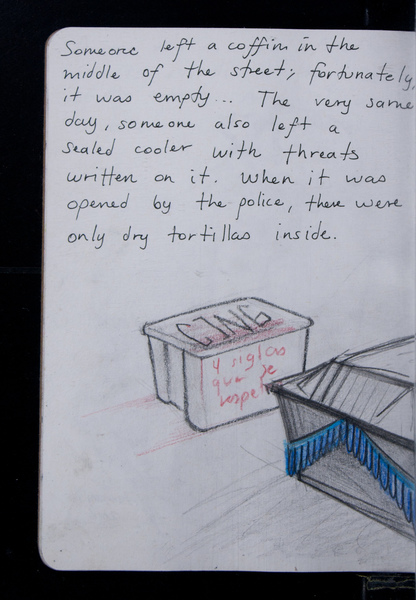 Someone left a coffin in the
middle of the street; fortunately,
it was empty... The very same
day, someone also left a
sealed cooler with threats
written on it. When it was
opened by the police, there were
only dry tortillas inside.
CJNG
4 siglas
que se
respetan